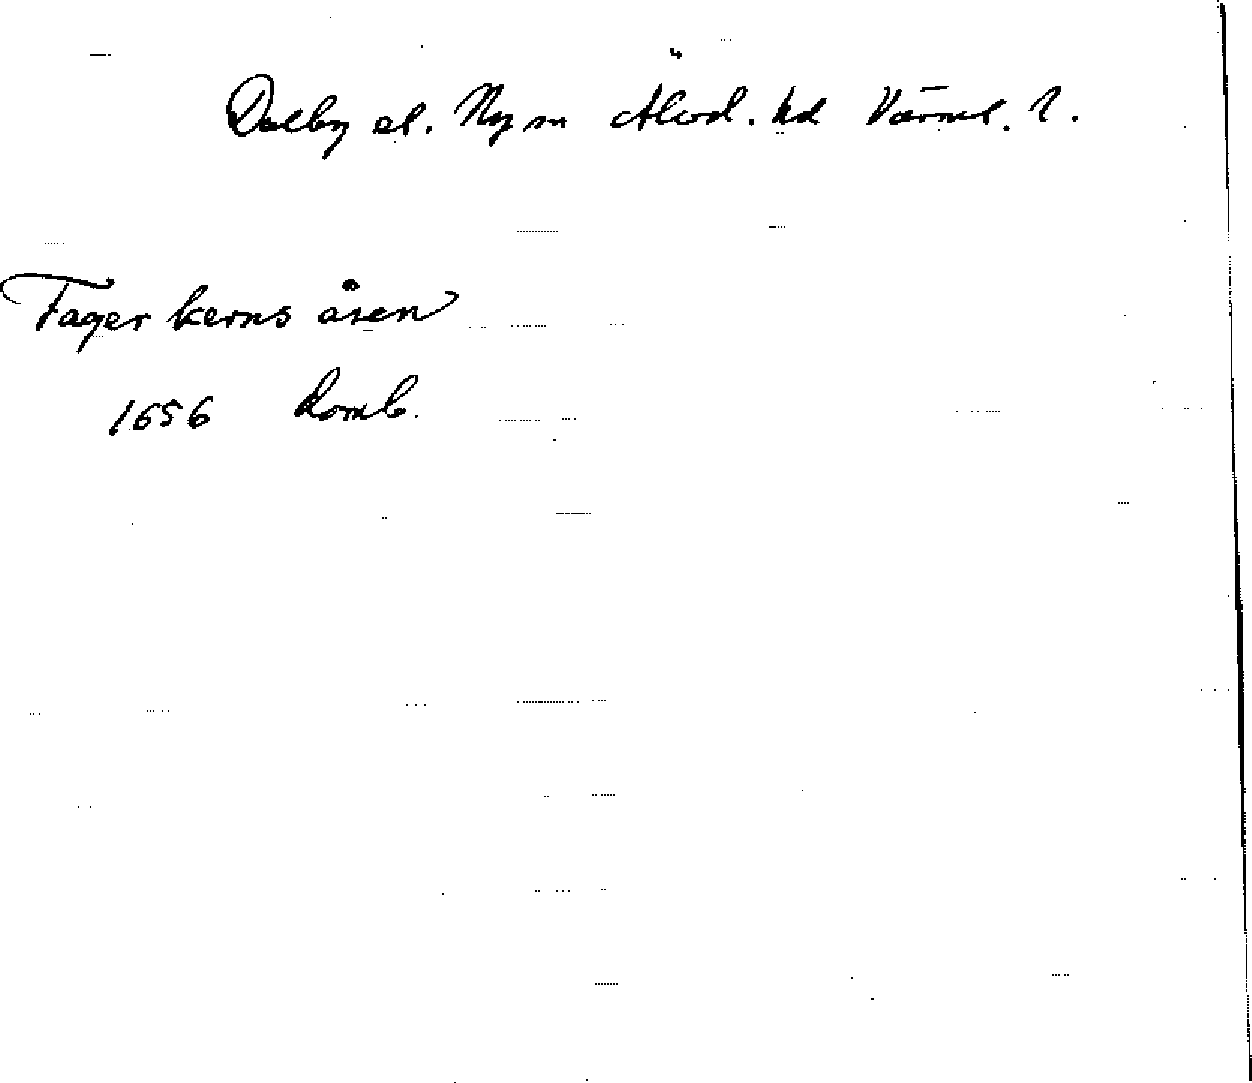 Dalby el. Ny sn Älvd. hd Värml. l.
Fagerkerns åsen
1656 Lomb.